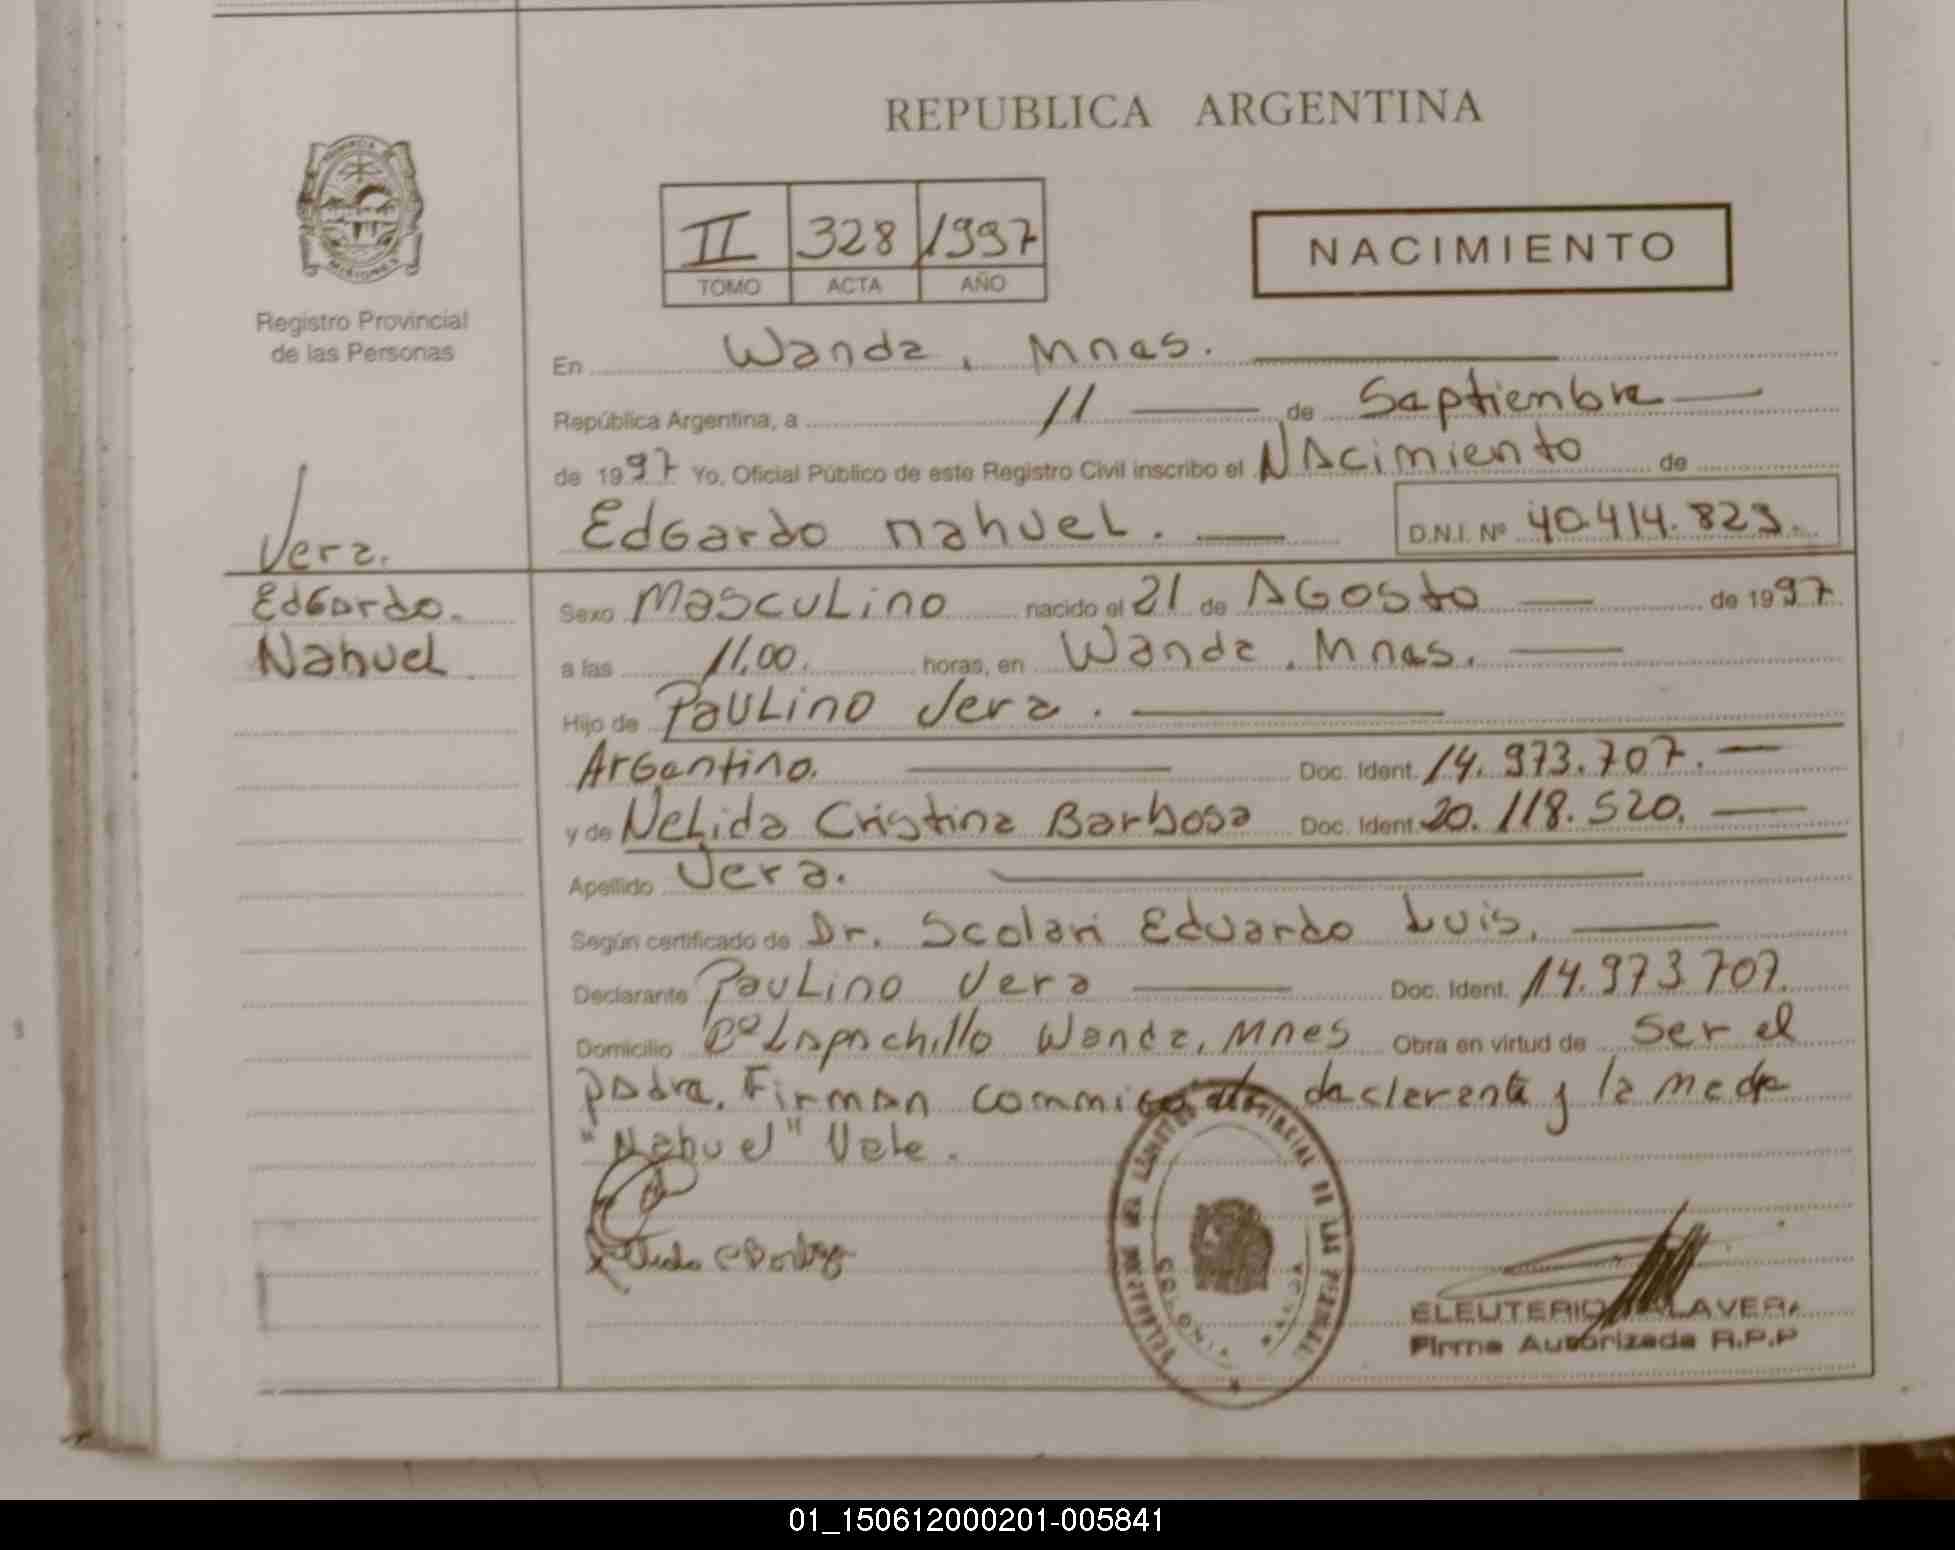 REPUBLICA ARGENTINA
II 328 1997
TOMO ACTA AÑO
NACIMIENTO
Registro Provincial
de las Personas
En Wanda, Mnas.
República Argentina, a 11 de Septiembre
de 1997 Yo, Oficial Público de este Registro Civil inscribo el NAcimiento de
Edgardo nahuel.
D.N.I. Nº 40.414.823.
Vera.
Edgardo.
Nahuel
Sexo Masculino nacido el 21 de AGosto de 1997
a las 11,00. horas, en Wanda, Mnas.
Hijo de Paulino Vera.
Argentino. Doc. Ident. 14.973.707.
y de Nelida Cristina Barbosa Doc. Ident. 20.118.520.
Apellido Vera.
Según certificado de Dr. Scolari Eduardo Luis.
Declarante Paulino Vera Doc. Ident. 14.973.707.
Domicilio Bº Lapachillo Wanda, Mnes Obra en virtud de Ser el
padre. Firman commigo declarente y la madre
"Nahuel" Vale.
COLONIA WANDA
ELEUTERIO TALAVERA
Firma Autorizada R.P.P
01_150612000201-005841